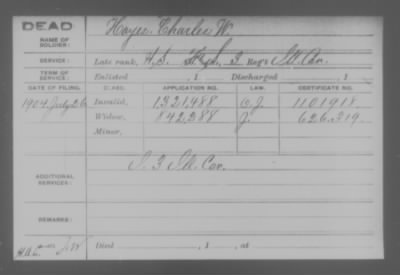 DEAD
NAME OF SOLDIER:
Hayes Charles W.
SERVICE:
Late rank, H.S. 3 Reg't Ill Cav.
TERM OF SERVICE:
Enlisted , 1 Discharged , 1
DATE OF FILING. CLASS. APPLICATION NO. LAW. CERTIFICATE NO.
1904 July 26 Invalid, 1321488 G.J 1101918
Widow, 842,388 J. 626.319
Minor,
ADDITIONAL SERVICES:
S. 3 Ill Cav.
REMARKS:
Died , 1 , at